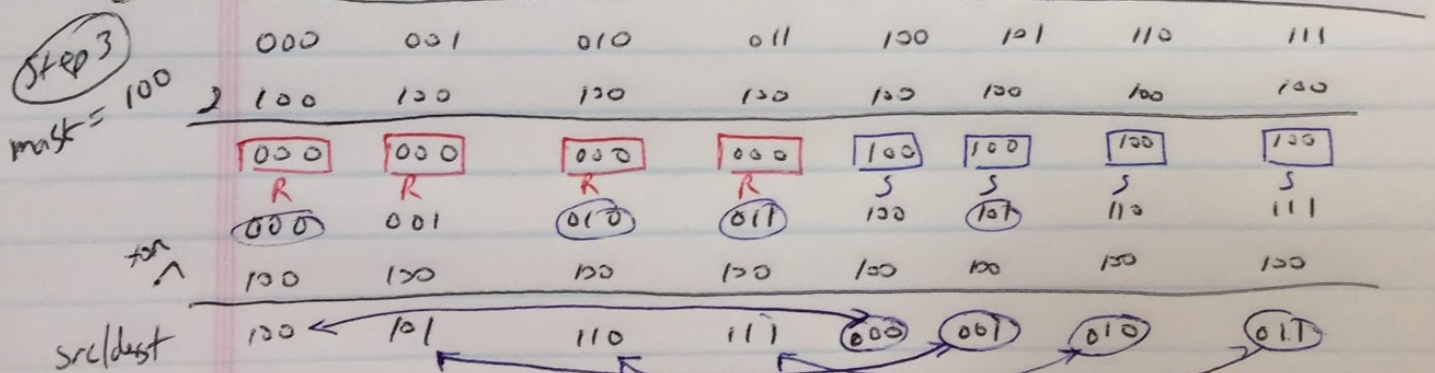 Step 3
000 001 010 011 100 101 110 111
mask = 100
& 100 100 100 100 100 100 100 100
000 000 000 000 100 100 100 100
R R R R S S S S
000 001 010 011 100 101 110 111
^ 100 100 100 100 100 100 100 100
src/dest 100 101 110 111 000 001 010 011